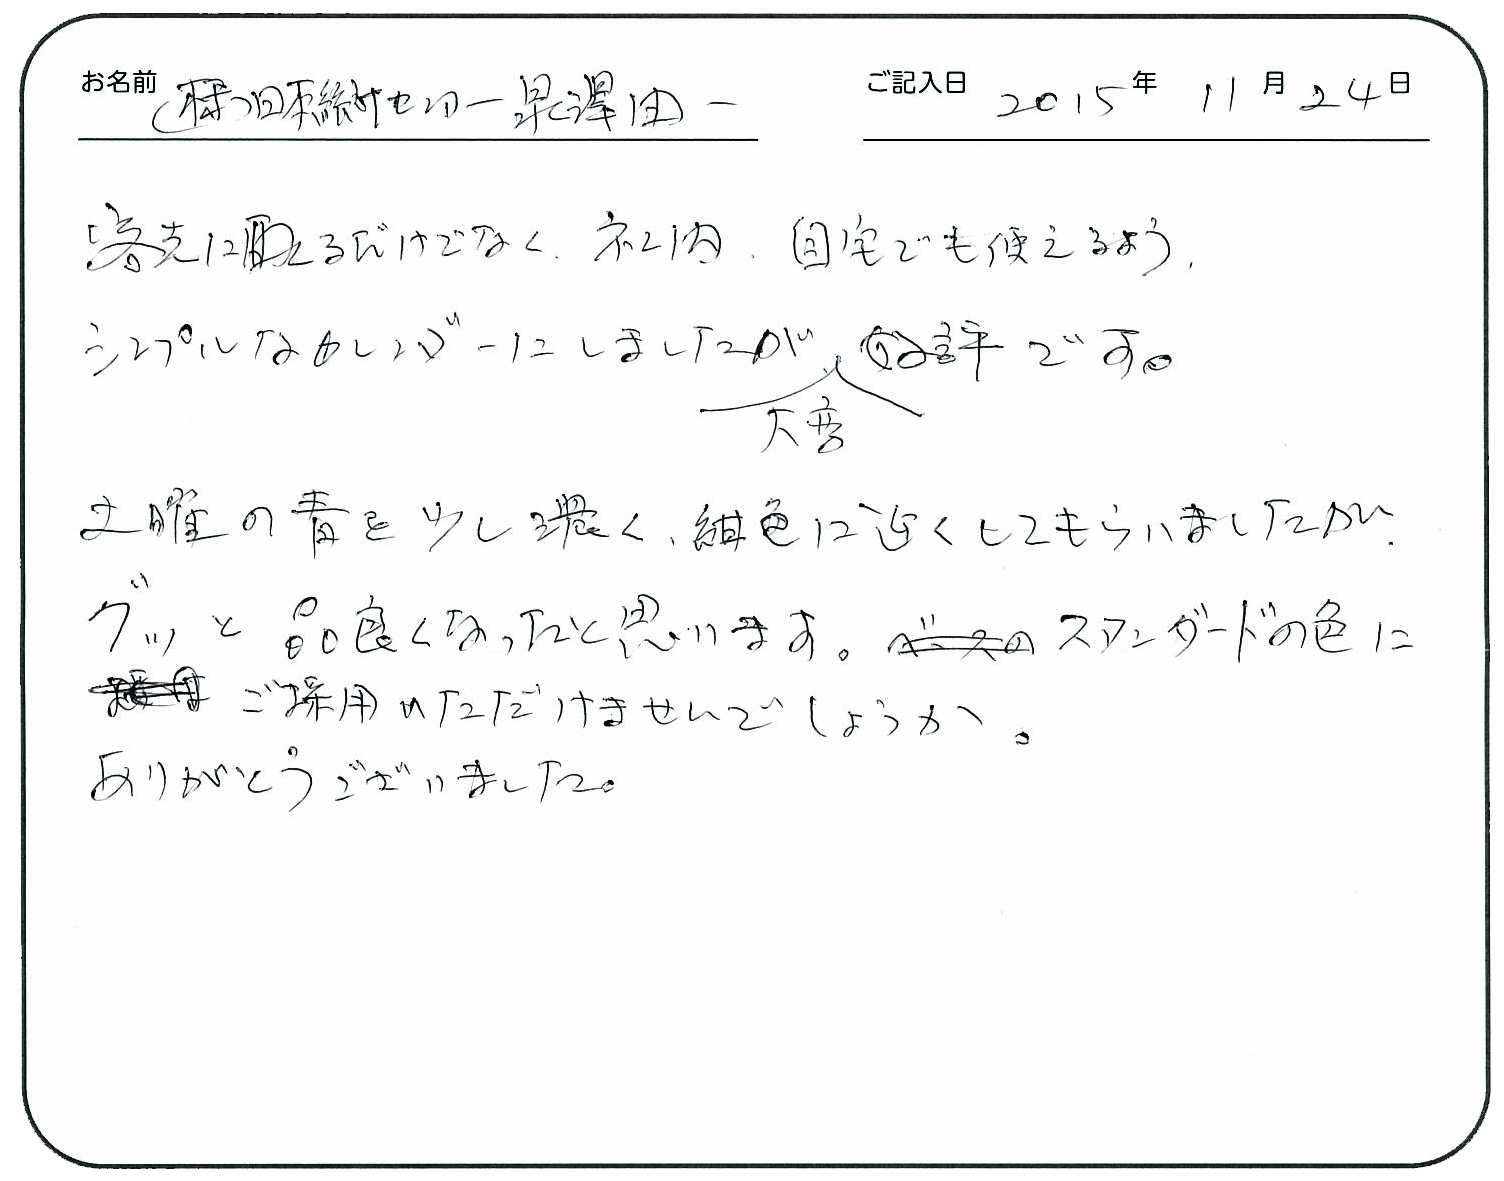 お名前 (株)日本統計センター 早澤由一 ご記入日 2015年 11月24日
客先に配るだけでなく、社内、自宅でも使えるよう、
シンプルなカレンダーにしましたが、大変好評です。
土曜の青を少し濃く、紺色に近くしてもらいましたが、
グッと品良くなったと思います。スタンダードの色に
ご採用いただけませんでしょうか。
ありがとうございました。